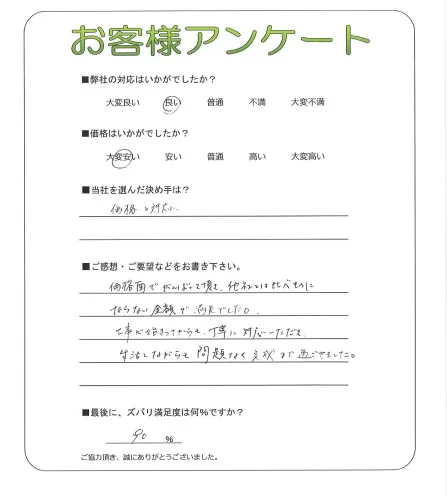 お客様アンケート
■弊社の対応はいかがでしたか?
大変良い 良い 普通 不満 大変不満
■価格はいかがでしたか?
大変安い 安い 普通 高い 大変高い
■当社を選んだ決め手は?
価格と対応
■ご感想・ご要望などをお書き下さい。
価格面でがんばって頂き、他社とは比べものに
ならない金額で満足でした。
工事が始まってからも、丁寧に対応いただき
生活しながらも問題なく完成まで過ごせました。
■最後に、ズバリ満足度は何%ですか?
90 %
ご協力頂き、誠にありがとうございました。